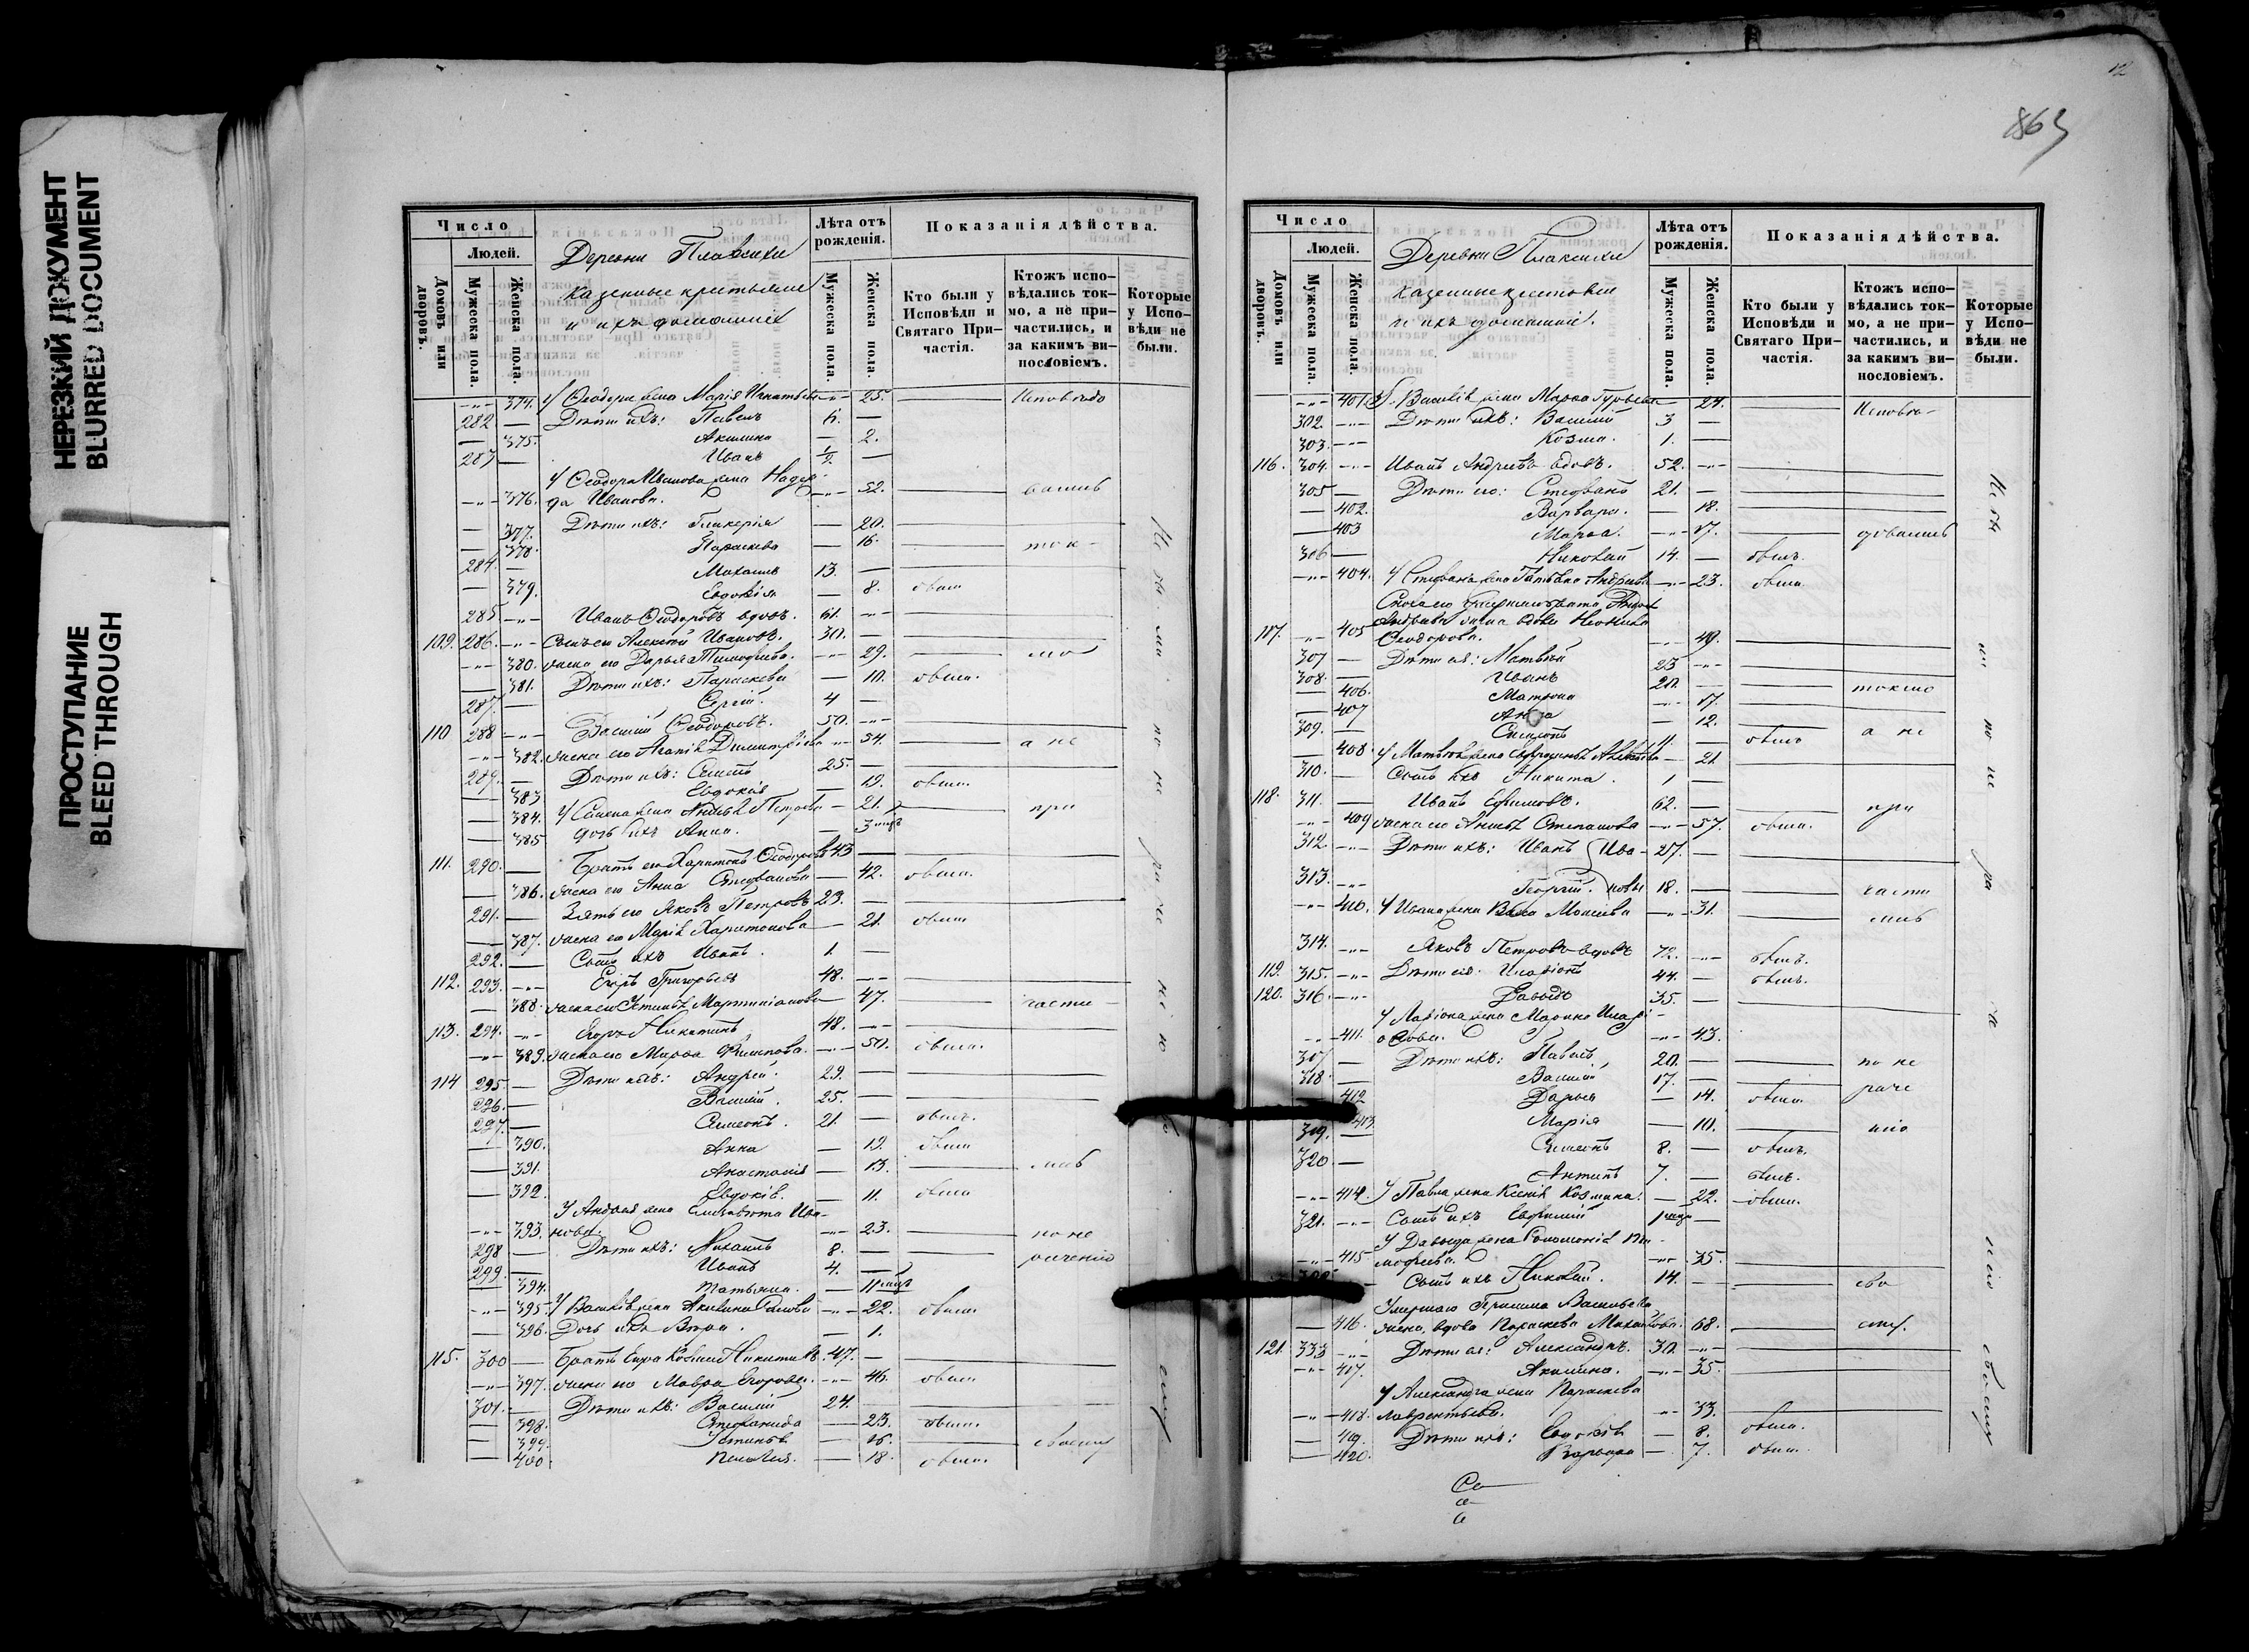 НЕРЕЗКИЙ ДОКУМЕНТ
BLURRED DOCUMENT
ПРОСТУПАНИЕ
BLEED THROUGH
Число
Людей.
Домовъ или дворовъ.
Мужеска пола.
Женска пола.
Деревни
Казенные крестьяне
и ихъ домашніе
Лѣта отъ рожденія.
Мужеска пола.
Женска пола.
Показанія дѣйства.
Кто были у Исповѣди и Святаго Причастія.
Ктожъ исповѣдались токмо, а не причастились, и за какимъ винословіемъ.
Которые у Исповѣди не были.
374. У Ѳеодора жена Марія Игнатьева 25. Исповѣдо
282 Дѣти ихъ: Павелъ
375. Акилина 2.
283 Иванъ 1/2
У Ѳеодора Иванова жена Надеж-
376. да Иванова. 52. вались
377. Дѣти ихъ: Гликерія 20.
378. Параскева 16. ток-
284. Михаилъ 13.
379. Евдокія 8. были
285 Иванъ Ѳеодоровъ вдовъ. 61.
109. 286. Сынъ его Алексѣй Ивановъ. 30.
380. жена его Дарья Тимофеева. 29. мо
381. Дѣти ихъ: Параскева 10. были.
287. Сергій. 4
110 288 Василій Ѳеодоровъ. 50.
382. жена его Агапія Димитріева 54. а не
289. Дѣти ихъ: 25.
383 Евдокія 19. были.
384. жена Петрова 21. при
385 дочь ихъ Анна. 3 мѣс
111. 290. Братъ его Харитонъ Ѳеодоровъ 43
386. жена его Анна Стефанова 42. были.
291. Зять его Яковъ Петровъ 23.
387. жена его Марія Харитонова 21. были
292. Сынъ ихъ Иванъ. 1.
112. 293. Егоръ Григорьевъ 48.
388. жена его Устинья Мартиніанова 47. части-
113. 294. Егоръ Никитинъ 48.
389. жена его Марѳа Филипова. 50. были.
114 295. Дѣти ихъ: Андрей. 29.
296. Василій. 25.
297. Симеонъ. 21. былъ.
390. Анна 19. были
391. Анастасія 13. лись
392. Евдокія. 11. была
У Андрея жена Елисавета Ива-
393. нова. 23. по не
298 Дѣти ихъ: Михаилъ 8. раченію
299. Иванъ 4.
394. Татьяна. 11 мѣс
395. У Василія жена Акилина 22. были
396. Дочь ихъ Вѣра. 1.
115. 300 Братъ Егора Козьма Никитинъ. 47.
397. жена его Мавра Егорова. 46. были
301. Дѣти ихъ: Василій 24.
398. Стефанида 23. были.
399. Устинья 16. своему
400. Пелагія. 18. были.
Не бы ли по не ра че ні ю сему
12
1863
Число
Людей.
Домовъ или дворовъ.
Мужеска пола.
Женска пола.
Деревни
Казенные крестьяне
и ихъ домашніе.
Лѣта отъ рожденія.
Мужеска пола.
Женска пола.
Показанія дѣйства.
Кто были у Исповѣди и Святаго Причастія.
Ктожъ исповѣдались токмо, а не причастились, и за какимъ винословіемъ.
Которые у Исповѣди не были.
401. У Василія жена Марѳа Гурьева 24. Исповѣ-
302. Дѣти ихъ: Василій 3
303. Козма. 1.
116. 304. Иванъ Андреевъ вдовъ. 52.
305 Дѣти его: Стефанъ 21.
402. Варвара. 18.
403 Марѳа. 17. довались
306 Николай 14. былъ.
404. У Стефана жена Татьяна Андреева 23. были.
117. 405 Ѳеодорова. 49.
307 Дѣти ея: Матвѣй 23
308. Иванъ 20.
406. Матрона 17. токмо
407 Анна 12.
309. 11. былъ а не
408. У Матвѣя жена 21.
310. Сынъ ихъ Никита. 1
118. 311. Иванъ Ефимовъ. 62. при
409 жена его Анисья Степанова 57. были.
312. Дѣти ихъ: Иванъ Ива- 27.
313. Георгій. новы 18. части
410. У Ивана жена Васса Моисеева 31. лись
314. Яковъ Петровъ вдовъ 72. былъ.
119. 315. Дѣти его: Иларіонъ 44. былъ.
120. 316. Давыдъ 35.
У Ларіона жена Марина Илларі-
411. онова. 43.
317 Дѣти ихъ: Павелъ, 20. по не
318 Василій 17. раче
412 Дарья 14. были.
413 Марія 10. нію
319. Симеонъ 8. былъ.
320 Антипъ 7. былъ.
414. У Павла жена Ксенія Козмина. 22. были.
321. Сынъ ихъ Евфимій 1 мѣс
У Давыда жена Соломонія Ти-
415 мофеева. 35.
Сынъ ихъ Николай. 14. сво
Умершаго Васильева
416. жена, вдова Параскева Михайлова. 68. ему.
121. 333 Дѣти ея: Александръ. 30.
417. Акилина. 35.
У Александра жена Параскева
418. Лаврентьева. 33.
419. Дѣти ихъ: Евдокія 8. были.
420. Варвара 7. были.
Не бы ли по не ра че нію своему